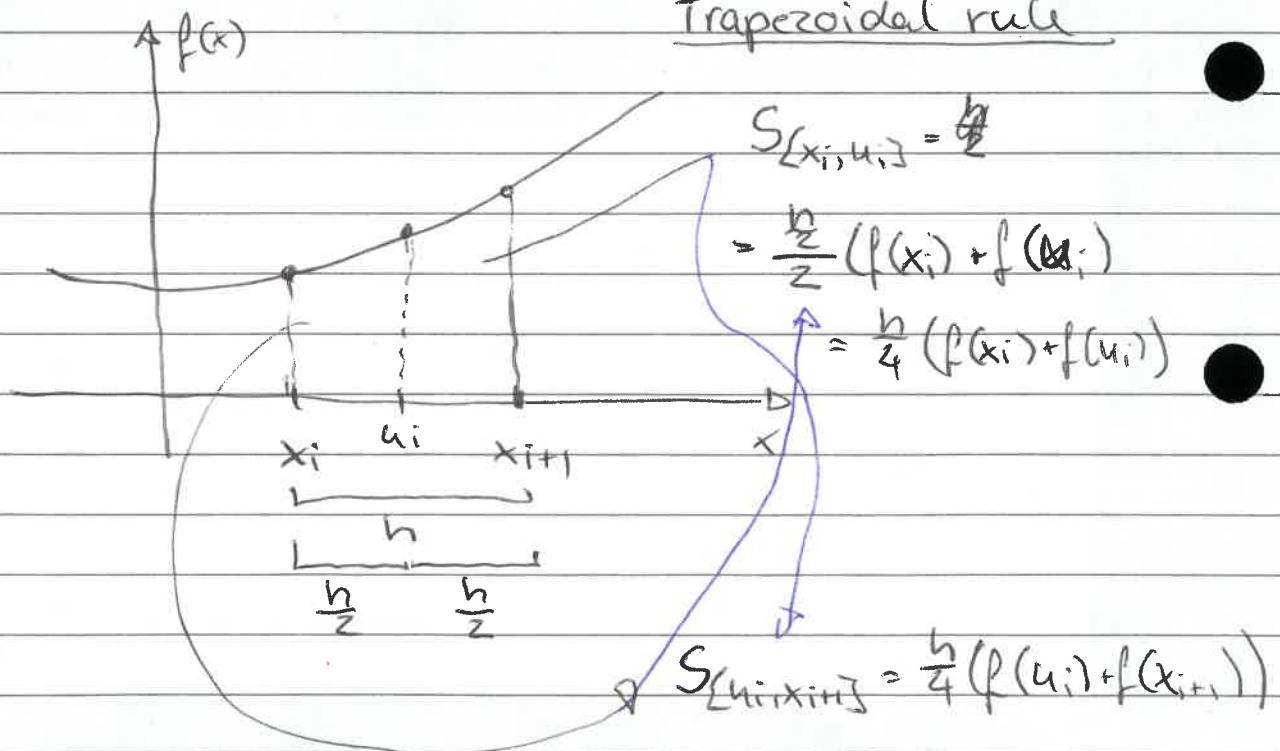 Trapezoidal rule
f(x)
S[xi,ui] =
= h/2/2 (f(xi) + f(ui)
= h/4 (f(xi)+f(ui))
xi ui xi+1 x
h
h/2 h/2
S[ui,xi+1] = h/4 (f(ui)+f(xi+1))